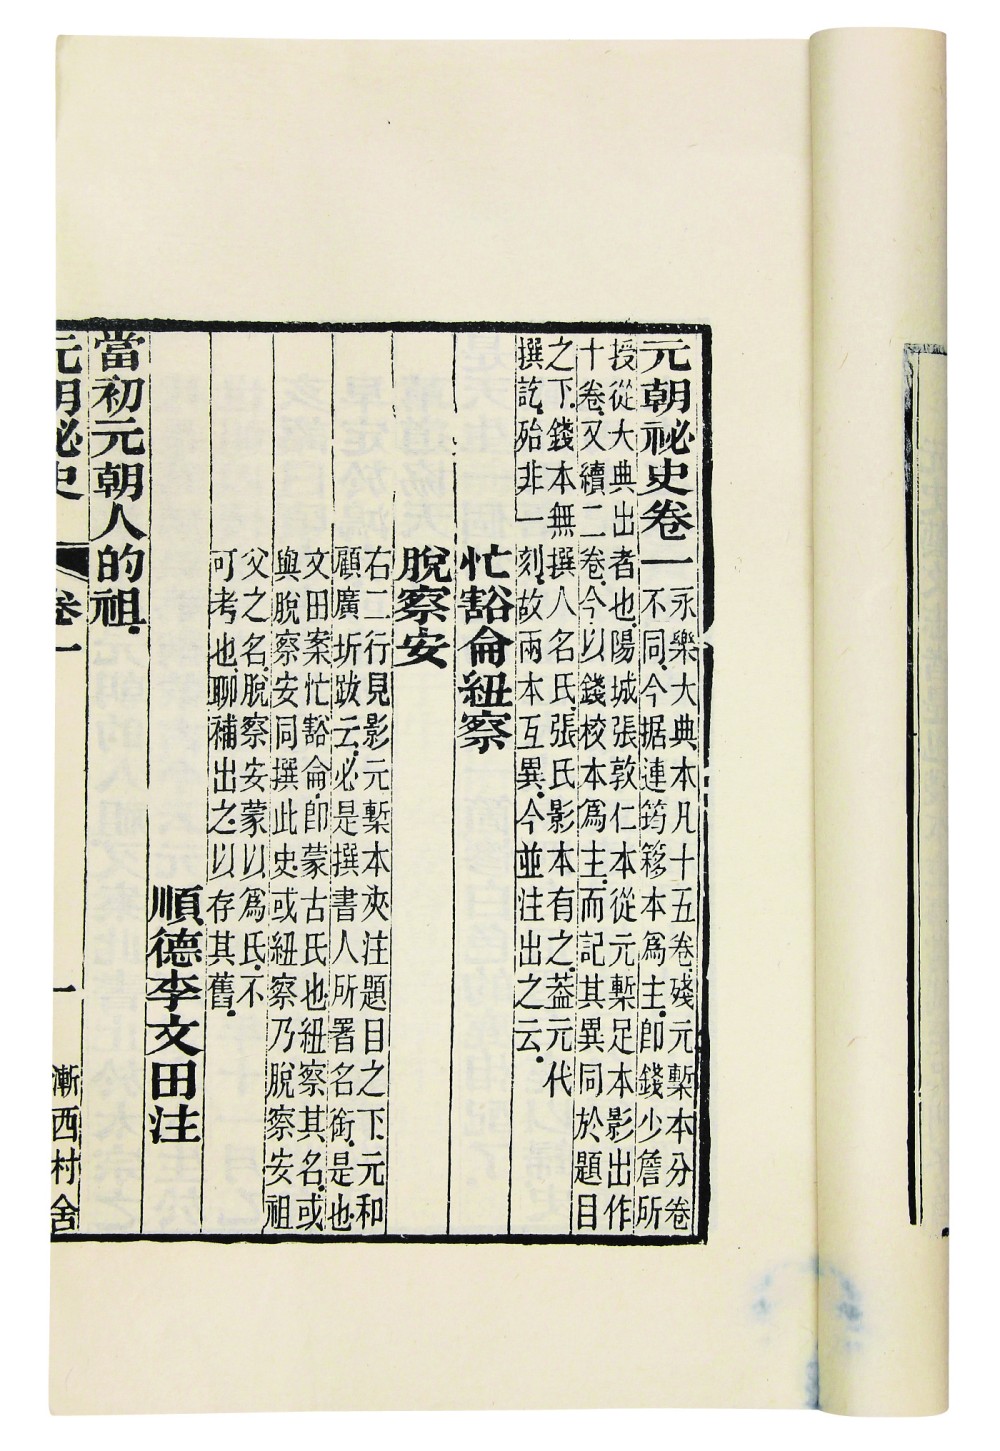 元朝祕史卷一
永樂大典本凡十五卷殘元槧本分卷
不同今据連筠簃本爲主卽錢少詹所
授從大典出者也陽城張敦仁本從元槧足本影出作
十卷又續二卷今以錢校本爲主而記其異同於題目
之下錢本無撰人名氏張氏影本有之葢元代
撰訖殆非一刻故兩本互異今並注出之云
忙豁侖紐察
脫察安
右二行見影元槧本夾注題目之下元和
顧廣圻跋云必是撰書人所署名銜是也
文田案忙豁侖卽蒙古氏也紐察其名或
與脫察安同撰此史或紐察乃脫察安祖
父之名脫察安蒙以爲氏不
可考也聊補出之以存其舊
順德李文田注
當初元朝人的祖
元朝祕史
卷一
一
漸西村舍